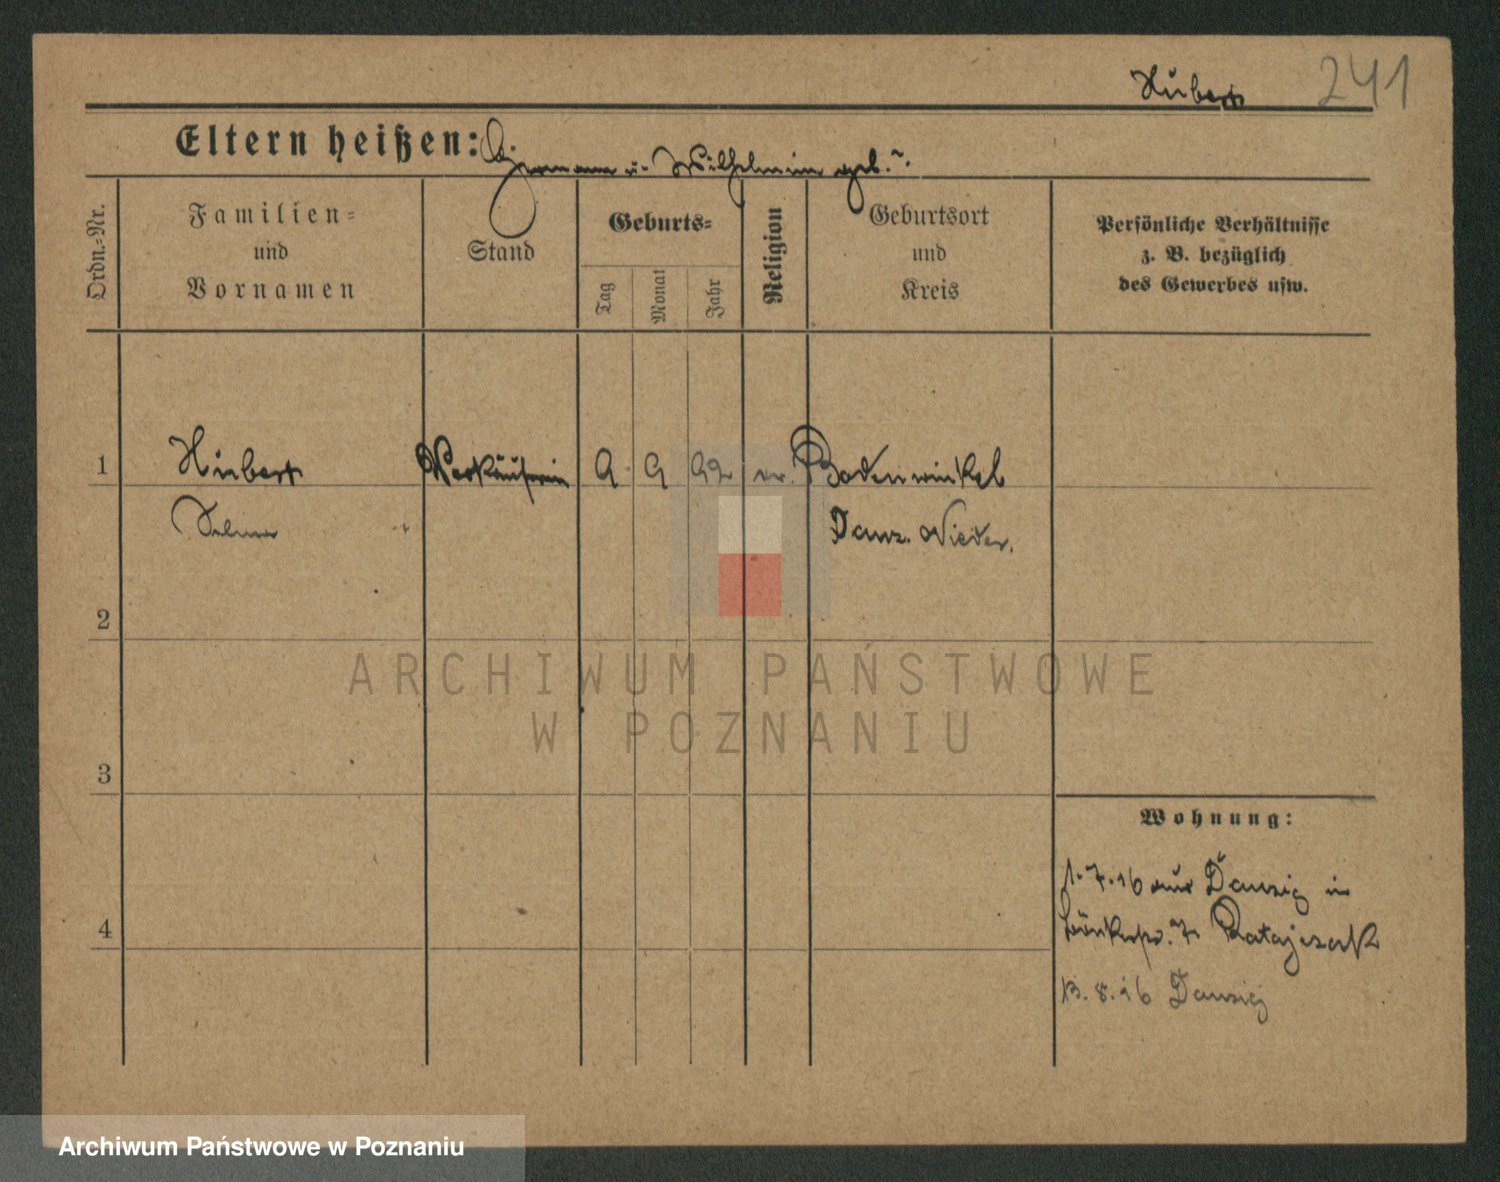 Hubert 241
Eltern heißen: Hermann u. Wilhelmine geb. ?.
Ordn.=Nr.
Familien=
und
Vornamen
Stand
Geburts=
Tag
Monat
Jahr
Religion
Geburtsort
und
Kreis
Persönliche Verhältnisse
z. B. bezüglich
des Gewerbes usw.
1 Hubert Verkäuferin 9 9 92 ev. Bodenwinkel
Selma Danz. Nieder.
2
3
4
Wohnung:
1.7.16 aus Danzig in
7 Ratajczak
13.8.16 Danzig
ARCHIWUM PAŃSTWOWE
W POZNANIU
Archiwum Państwowe w Poznaniu